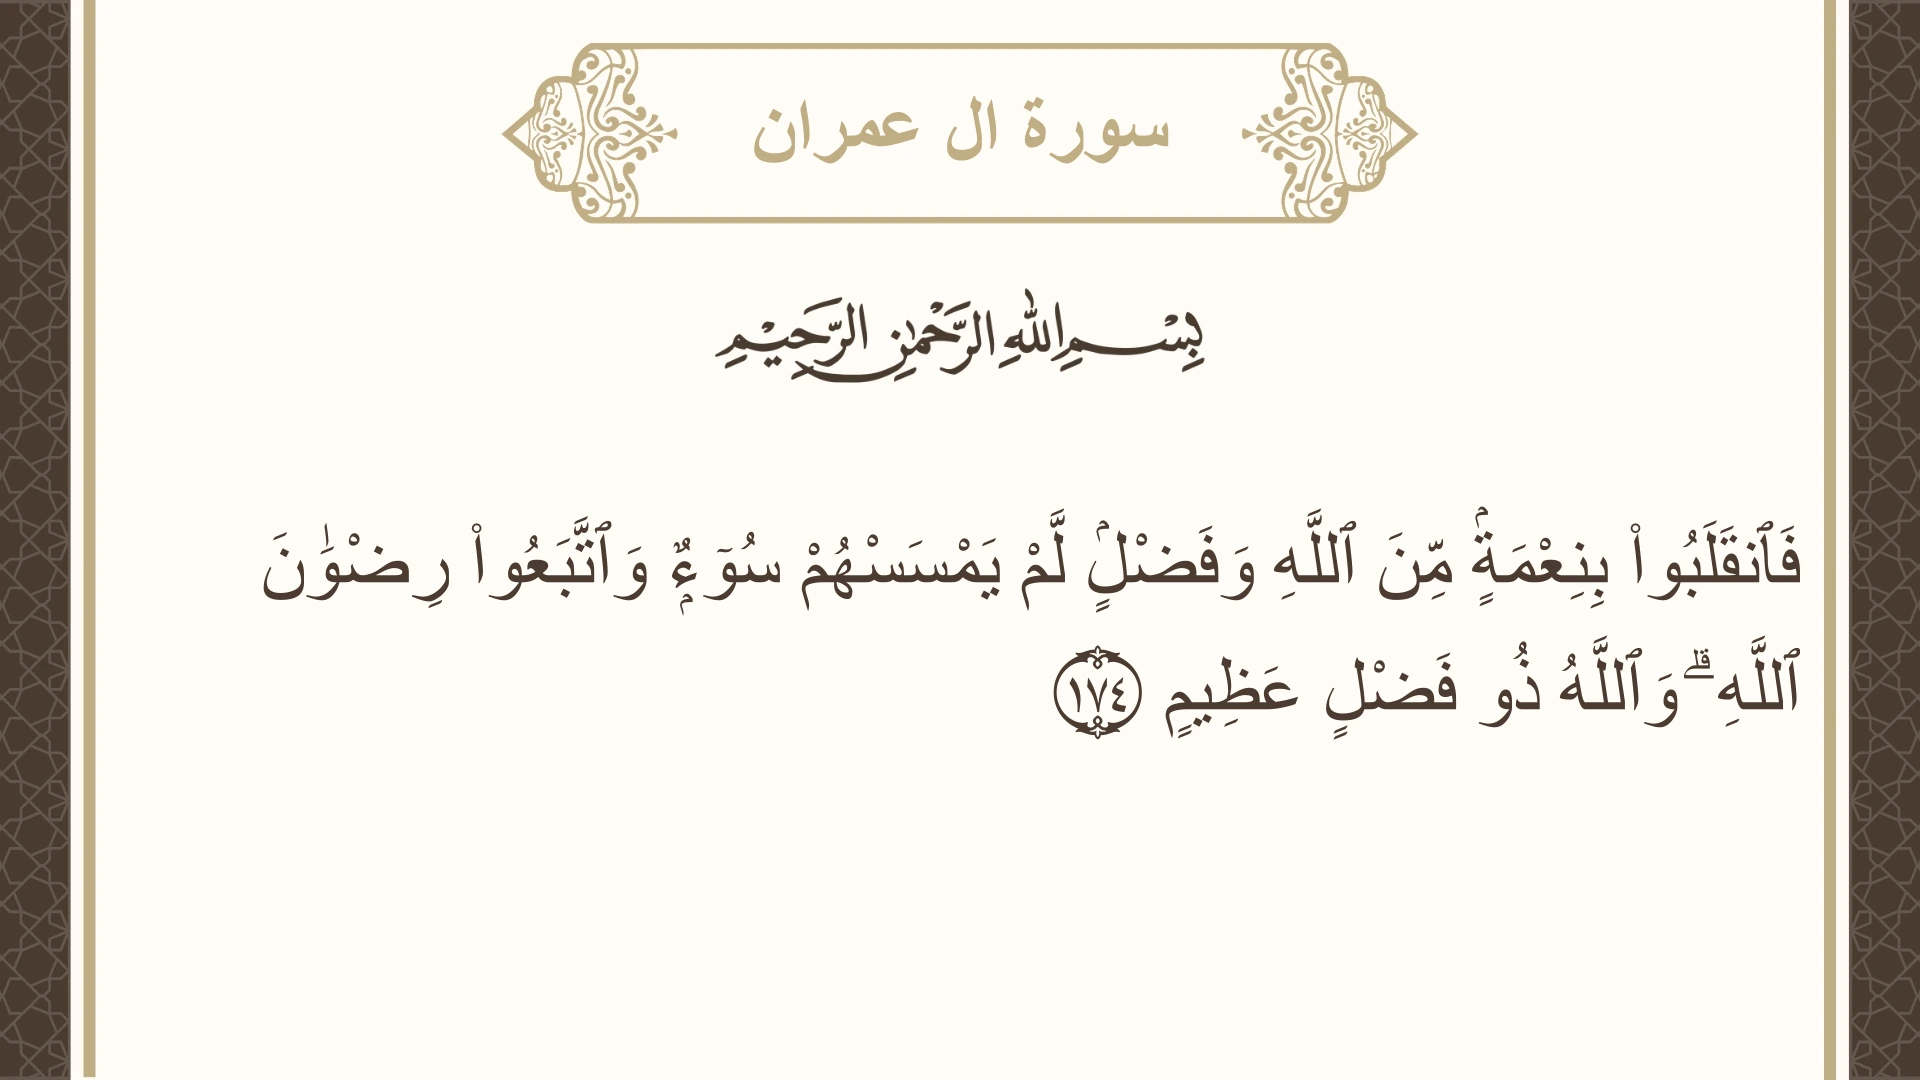 سورة ال عمران
بِسْمِ اللهِ الرَّحْمٰنِ الرَّحِيْمِ
فَٱنقَلَبُوا۟ بِنِعْمَةٍۢ مِّنَ ٱللَّهِ وَفَضْلٍۢ لَّمْ يَمْسَسْهُمْ سُوٓءٌۭ وَٱتَّبَعُوا۟ رِضْوَٰنَ
ٱللَّهِ ۗ وَٱللَّهُ ذُو فَضْلٍ عَظِيمٍ ١٧٤